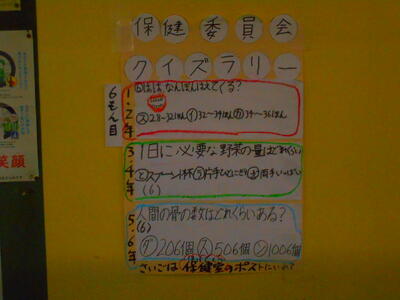 保健委員会
クイズラリー
6もん目
1.2年
はは、なんぼんはえてくる?
ス28〜32ほん イ32〜34ほん カ34〜36ほん
3.4年
1日に必要な野菜の量はどれくらい
スプーン1杯 片手ひとにぎり 両手いっぱい
(6)
5.6年
人間の骨の数はどれくらいある?
(6)
206個 ス506個 1006個
さいごは保健室のポストにいれて
笑顔